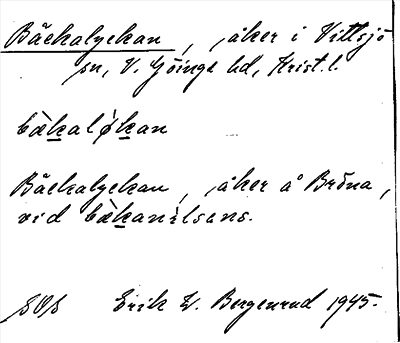 Bäckalyckan, åker i Vittsjö
sn, V. Göinge hd, Krist. l.
bækaløkan
Bäckalyckan, åker å Bröna,
vid bækanilsens.
SOS Erik W. Bergenrud 1945.